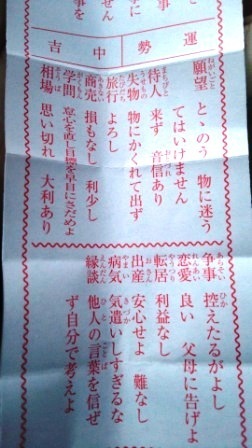 運勢 中吉
願望 とゝのう 物に迷う
てはいけません
待人 来ず 音信あり
失物 物にかくれて出ず
旅行 よろし
商売 損もなし 利少し
学問 怠心を直し目標を早目にさだめよ
相場 思い切れ 大利あり
争事 控えたるがよし
恋愛 良い 父母に告げよ
転居 利益なし
出産 安心せよ 難なし
病気 気遣いしすぎるな
縁談 他人の言葉を信ぜ
ず自分で考えよ